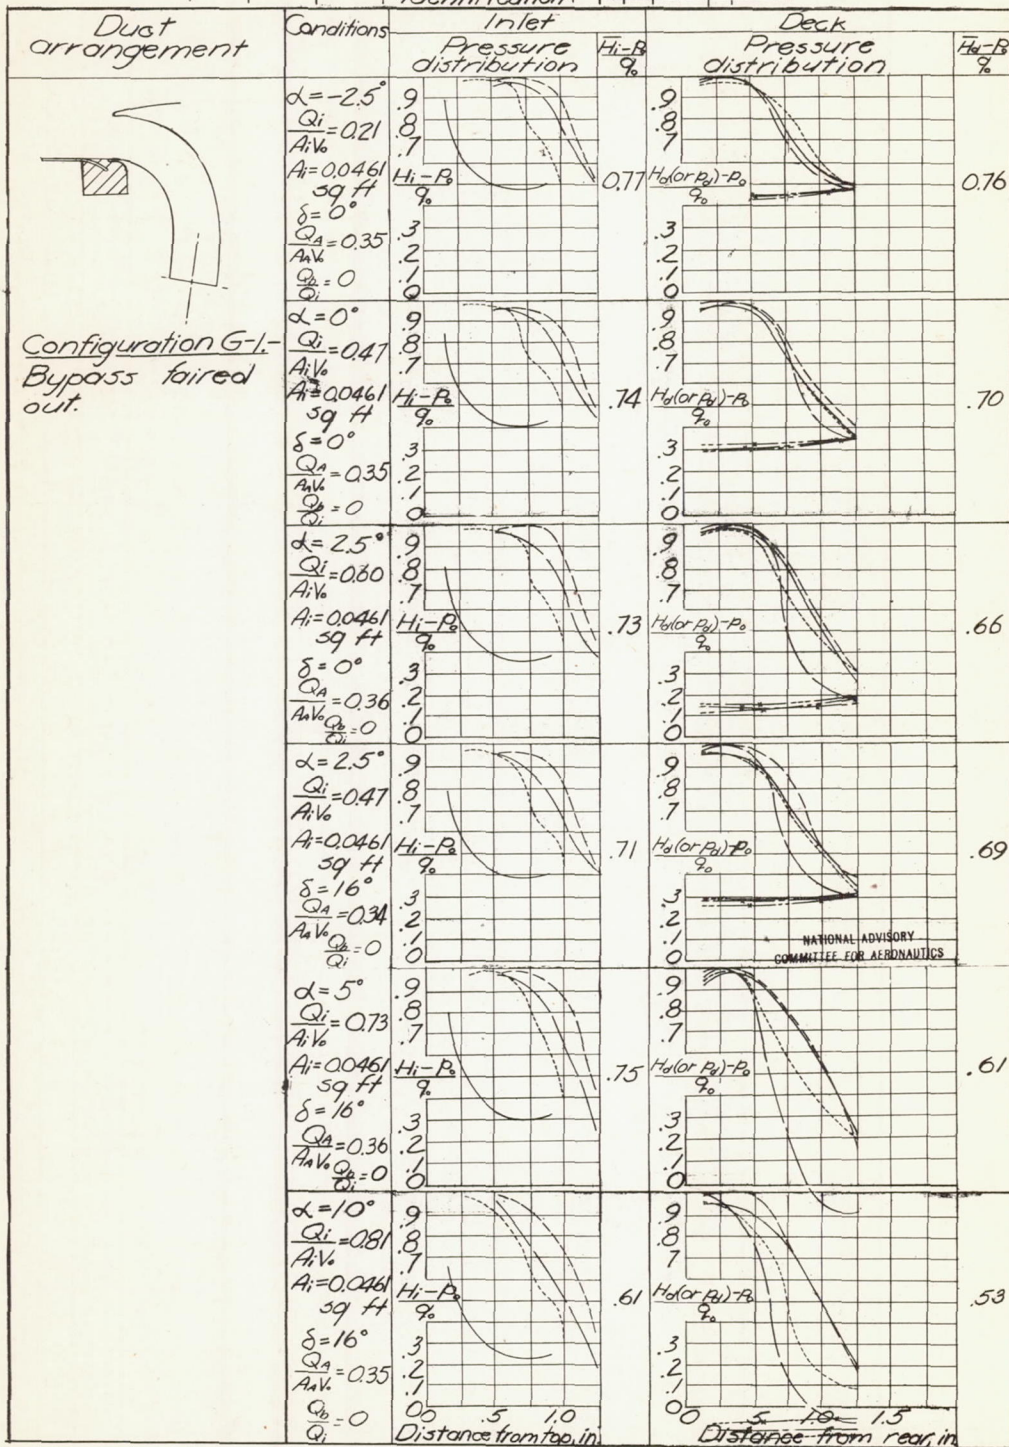 Identification
Duct
arrangement
Conditions
Inlet
Pressure
distribution
H̄i-P₀
q₀
Deck
Pressure
distribution
H̄d-P₀
q₀
Configuration G-1.-
Bypass faired
out.
α=-2.5°
Qi
AiV₀ =0.21
Ai=0.0461
sq ft
δ=0°
QA
AAV₀ =0.35
Qb
Qi =0
.9
.8
.7
Hi-P₀
q₀
.3
.2
.1
0
0.77
.9
.8
.7
Hd(or pd)-p₀
q₀
.3
.2
.1
0
0.76
α=0°
Qi
AiV₀ =0.47
Ai=0.0461
sq ft
δ=0°
QA
AAV₀ =0.35
Qb
Qi =0
.9
.8
.7
Hi-P₀
q₀
.3
.2
.1
0
.74
.9
.8
.7
Hd(or pd)-p₀
q₀
.3
.2
.1
0
.70
α=2.5°
Qi
AiV₀ =0.60
Ai=0.0461
sq ft
δ=0°
QA
AAV₀ =0.36
Qb
Qi =0
.9
.8
.7
Hi-P₀
q₀
.3
.2
.1
0
.73
.9
.8
.7
Hd(or pd)-p₀
q₀
.3
.2
.1
0
.66
α=2.5°
Qi
AiV₀ =0.47
Ai=0.0461
sq ft
δ=16°
QA
AAV₀ =0.34
Qb
Qi =0
.9
.8
.7
Hi-P₀
q₀
.3
.2
.1
0
.71
.9
.8
.7
Hd(or pd)-p₀
q₀
.3
.2
.1
0
NATIONAL ADVISORY
COMMITTEE FOR AERONAUTICS
.69
α=5°
Qi
AiV₀ =0.73
Ai=0.0461
sq ft
δ=16°
QA
AAV₀ =0.36
Qb
Qi =0
.9
.8
.7
Hi-P₀
q₀
.3
.2
.1
0
.75
.9
.8
.7
Hd(or pd)-p₀
q₀
.3
.2
.1
0
.61
α=10°
Qi
AiV₀ =0.81
Ai=0.0461
sq ft
δ=16°
QA
AAV₀ =0.35
Qb
Qi =0
.9
.8
.7
Hi-P₀
q₀
.3
.2
.1
0
0 .5 1.0
Distance from top, in.
.61
.9
.8
.7
Hd(or pd)-p₀
q₀
.3
.2
.1
0
0 .5 1.0 1.5
Distance from rear, in.
.53